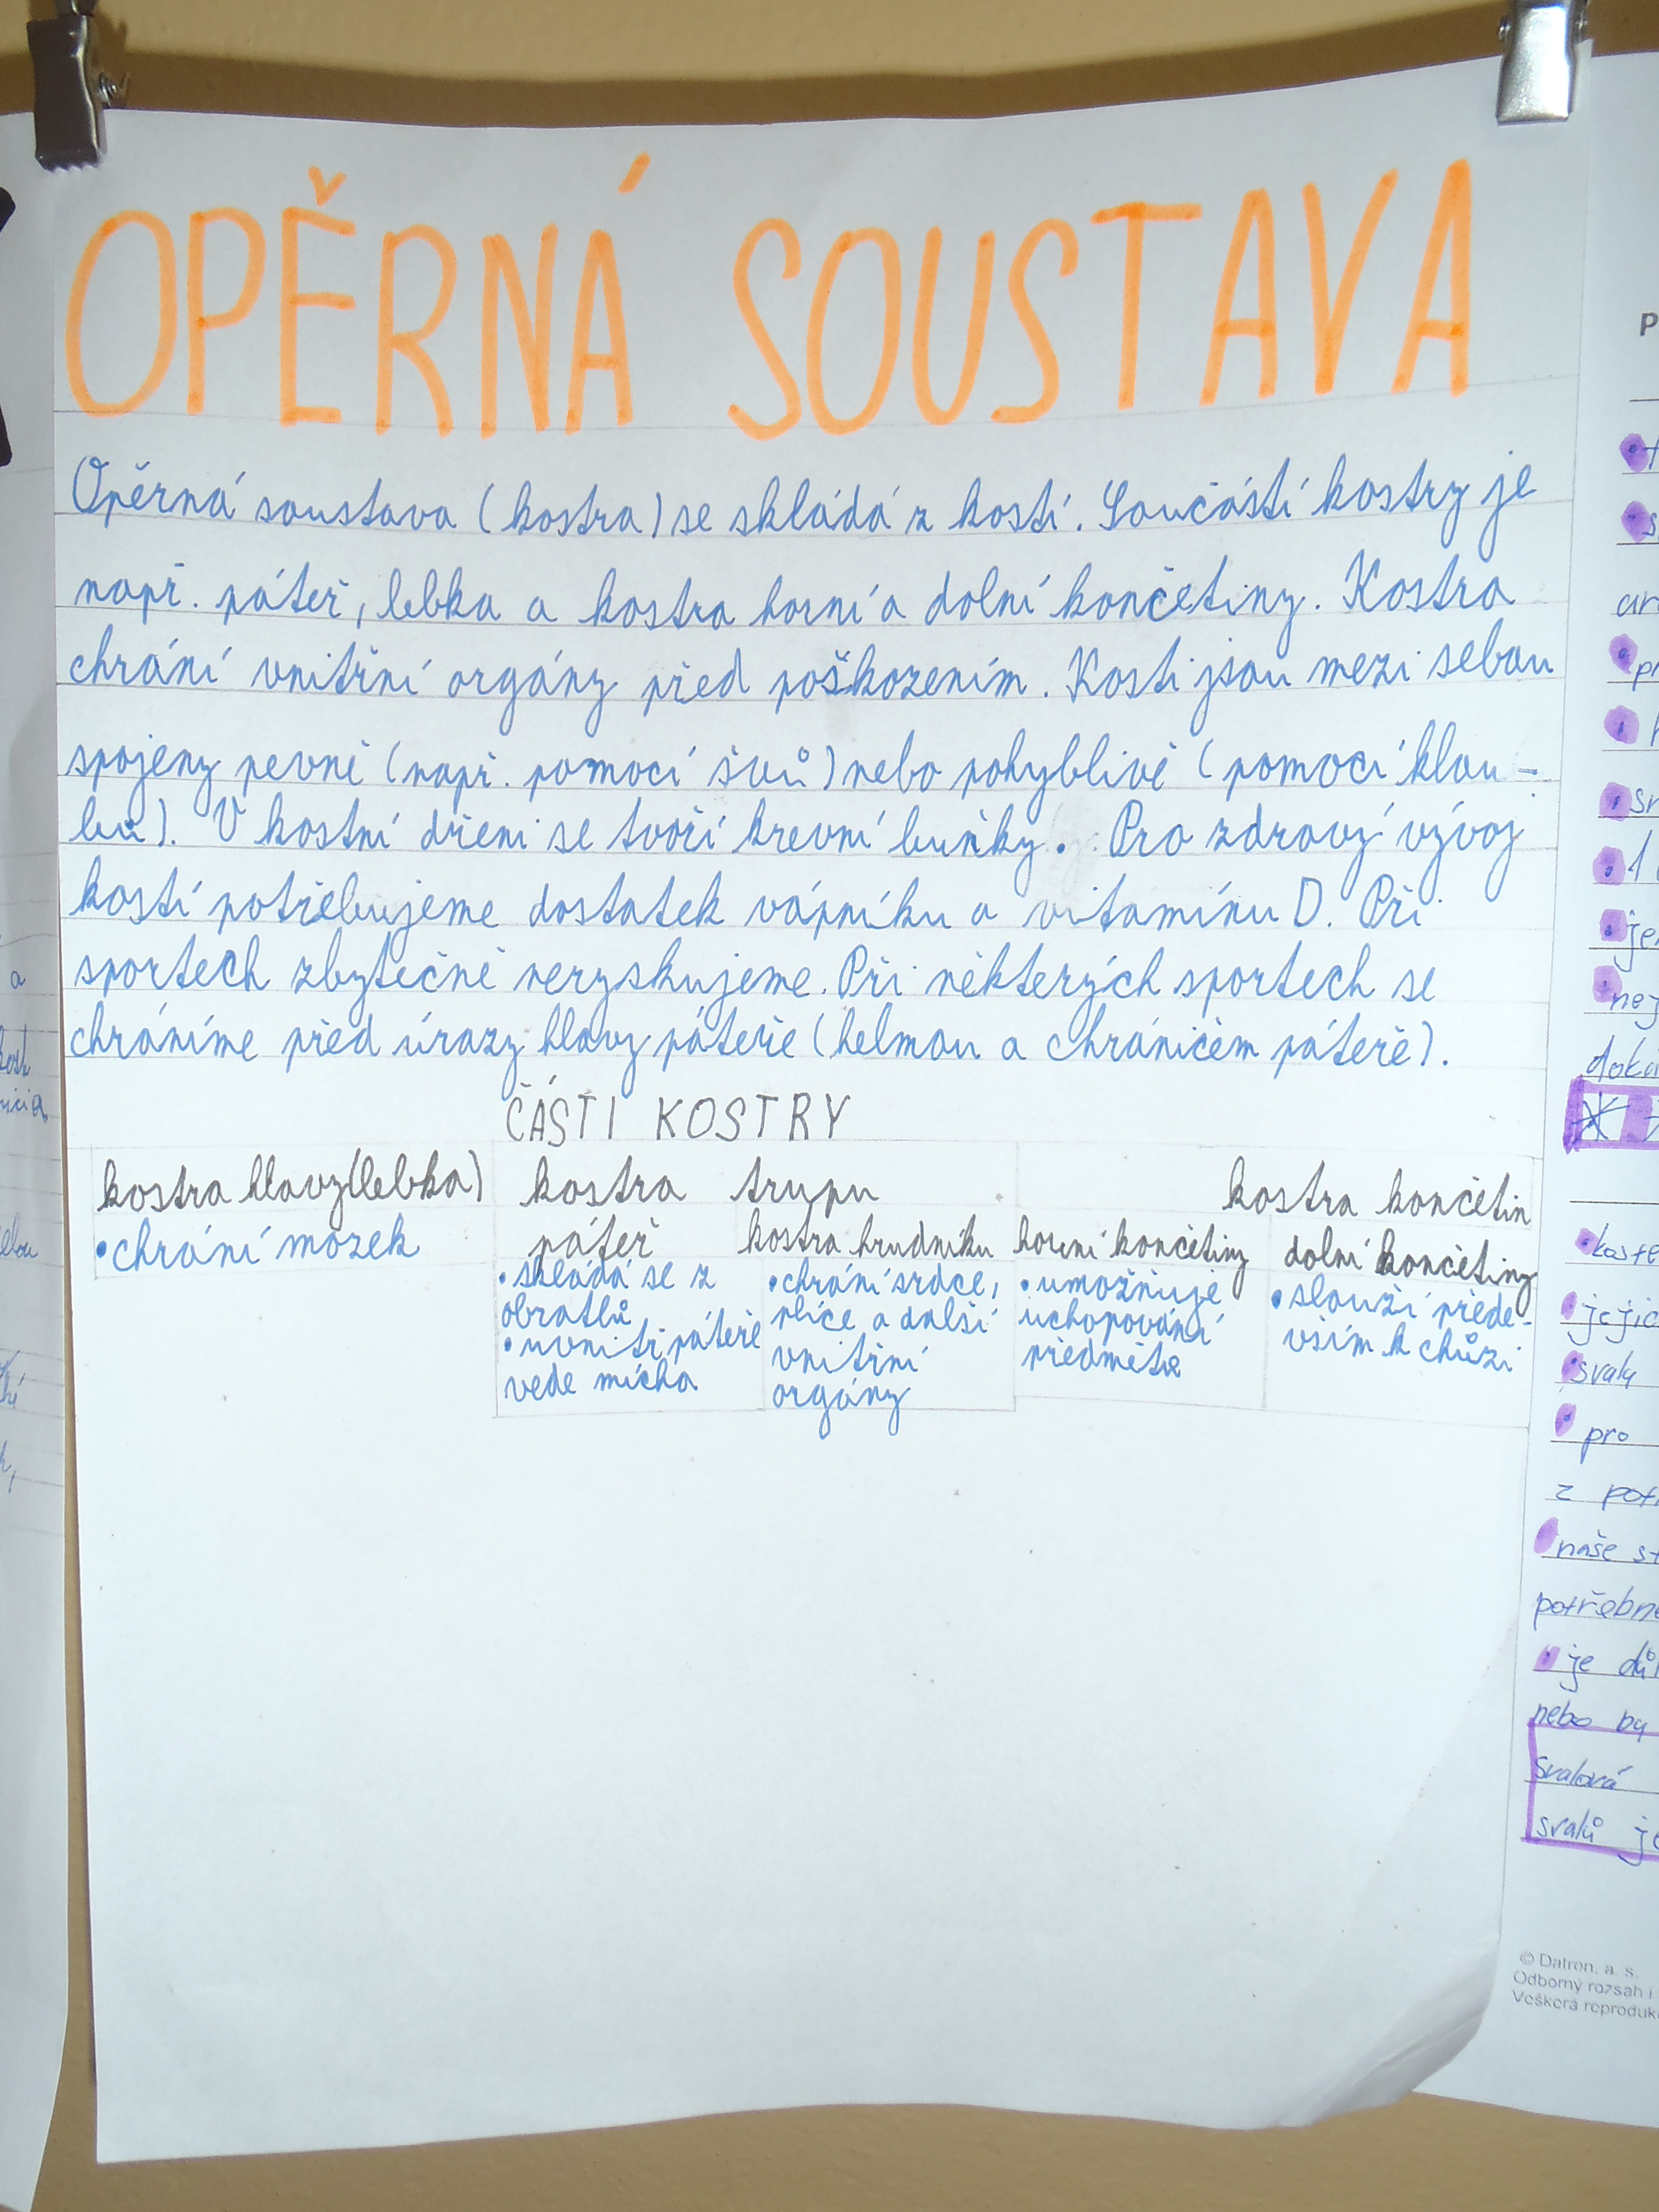 OPĚRNÁ SOUSTAVA
Opěrná soustava (kostra) se skládá z kostí. Součástí kostry je
např. páteř, lebka a kostra horní a dolní končetiny. Kostra
chrání vnitřní orgány před poškozením. Kosti jsou mezi sebou
spojeny pevně (např. pomocí švů) nebo pohyblivě (pomocí klou-
bů). V kostní dřeni se tvoří krevní buňky. Pro zdravý vývoj
kostí potřebujeme dostatek vápníku a vitamínu D. Při
sportech zbytečně neryskujeme. Při některých sportech se
chráníme před úrazy hlavy páteře (helmou a chráničem páteře).
ČÁSTI KOSTRY
kostra hlavy (lebka) kostra trupu kostra končetin
•chrání mozek
páteř kostra hrudníku horní končetiny dolní končetiny
•skládá se z
obratlů
•uvnitř páteře
vede mícha
•chrání srdce,
plíce a další
vnitřní
orgány
•umožňuje
uchopování
předmětů
•slouží přede-
vším k chůzi
P
•koste
•jejic
•svaly
•pro
z potř
•naše st
potřebn
•je důl
nebo by
svalová
svalů je
© Datron, a. s.
Odborný rozsah i
Veškerá reproduk